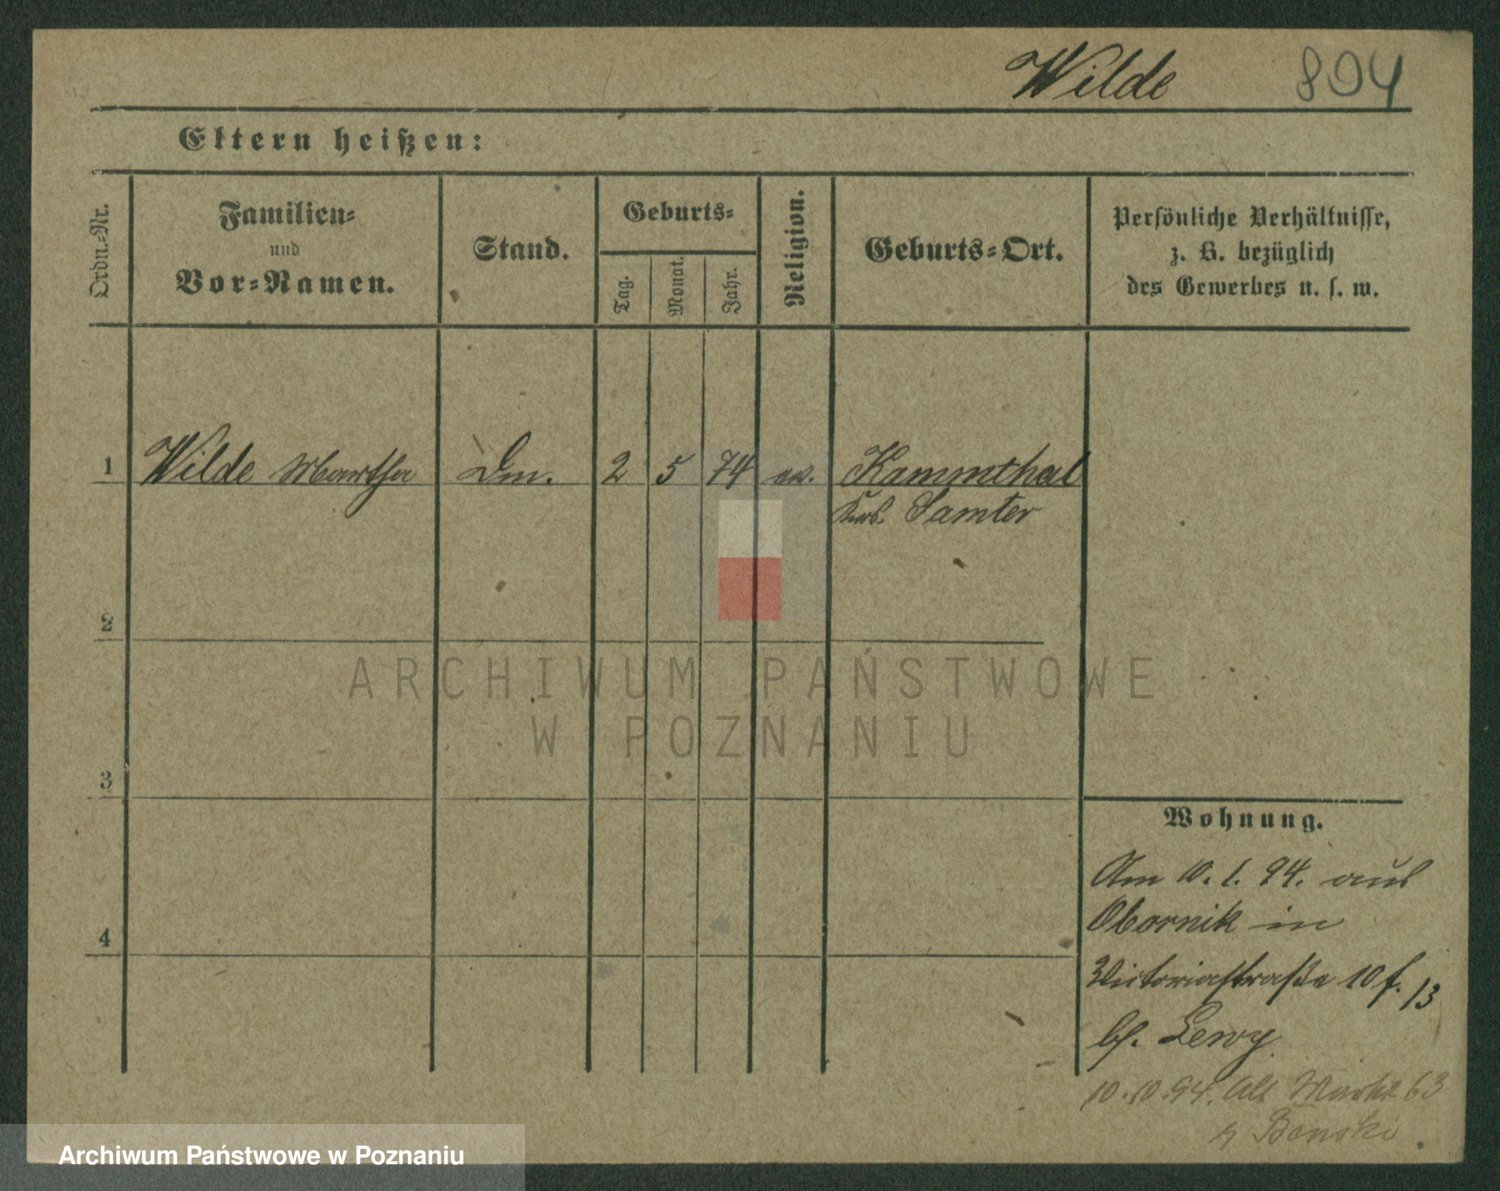 Wilde 804
Eltern heißen:
Ordn.-Nr.
Familien-
und
Vor-Namen.
Stand.
Geburts-
Tag.
Monat.
Jahr.
Religion.
Geburts-Ort.
Persönliche Verhältnisse,
z. B. bezüglich
des Gewerbes u. s. w.
1 Wilde Martha 2 5 74 ev. Kammthal
Samter
2
3
4
Wohnung.
Am 10. 1. 94. aus
Obornik in
Victoriastraße 10
Lewy
10.10.94. Alt Markt 63
ARCHIWUM PAŃSTWOWE
W POZNANIU
Archiwum Państwowe w Poznaniu